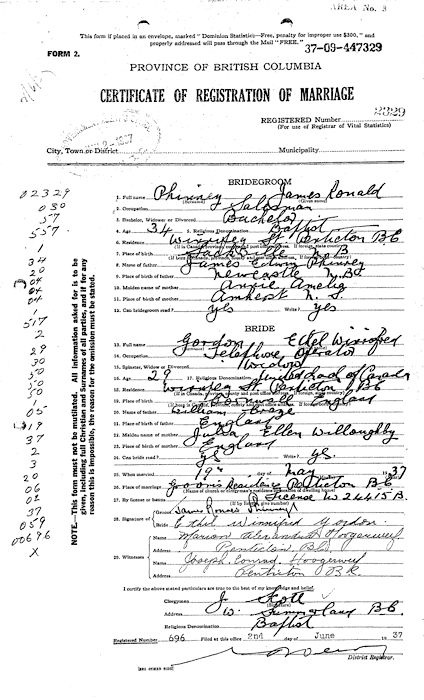 AREA No. 9
This form if placed in an envelope, marked "Dominion Statistics—Free, penalty for improper use $300," and
properly addressed will pass through the Mail "FREE."
37-09-447329
FORM 2.
PROVINCE OF BRITISH COLUMBIA
CERTIFICATE OF REGISTRATION OF MARRIAGE
REGISTERED Number 2329
(For use of Registrar of Vital Statistics)
City, Town or District Municipality
BRIDEGROOM
1. Full name Phinney James Ronald
2. Occupation Salesman
3. Bachelor, Widower or Divorced Bachelor
4. Age 34 5. Religious Denomination Baptist
6. Residence Winnipeg St Penticton B.C
7. Place of birth N B
8. Name of father James Edwin Phinney
9. Place of birth of father Newcastle N.B.
10. Maiden name of mother Angie Amelia
11. Place of birth of mother Amherst N.S.
12. Can bridegroom read? yes Write? yes
BRIDE
13. Full name Gordon Ethel Winnifred
14. Occupation Telephone Operator
15. Spinster, Widow or Divorced Widow
16. Age 29 17. Religious Denomination United Church of Canada
18. Residence Winnipeg St Penticton B C
19. Place of birth England
20. Name of father William
21. Place of birth of father England
22. Maiden name of mother Julia Ellen Willoughby
23. Place of birth of mother England
24. Can bride read? yes Write? yes
25. When married 19th May 1937
26. Place of marriage Groom's Residence Penticton B C
(Name of church or clergyman's residence or dwelling house)
27. By license or banns License No 24415B
(If by license, give number)
28. Signatures of Groom James Ronald Phinney
Bride Ethel Winnifred Gordon
29. Witnesses Name Marion Alexandria Hoogerwerf
Address Penticton B.C.
Name Joseph Conrad Hoogerwerf
Address Penticton B.C.
I certify the above stated particulars are true to the best of my knowledge and belief.
Clergyman J. Scott
Address W. Summerland B.C.
Religious Denomination Baptist
Registered Number 696 Filed at this office 2nd day of June 1937
District Registrar.
[SEE OTHER SIDE]
NOTE.—This form must not be mutilated. All information asked for is to be
given, including full Christian and Surnames of all parties, and if for any
reason this is impossible, the reason for the omission must be stated
02329
030
57
557
1
34
20
04
04
04
1
517
2
29
30
50
50
1
05
19
37
2
3
20
06
02
37
059
00696
X